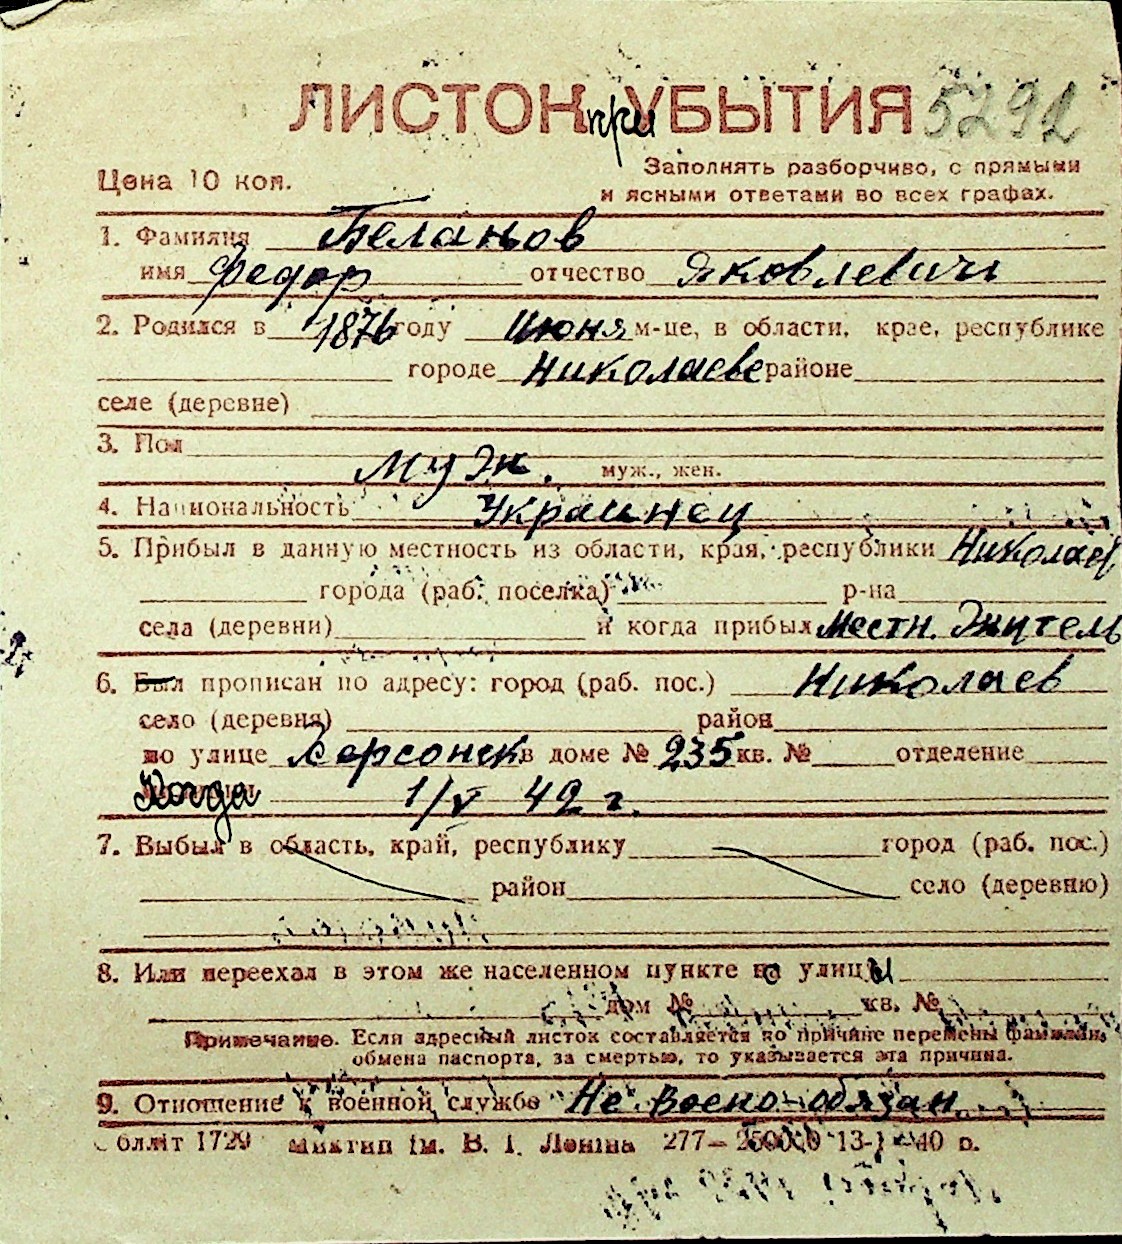 ЛИСТОК при УБЫТИЯ 5292
Цена 10 коп.
Заполнять разборчиво, с прямыми
и ясными ответами во всех графах.
1. Фамилия Беланов
имя Федор отчество Яковлевич
2. Родился в 1876 году июня м-це, в области, крае, республике
городе Николаеве районе
селе (деревне)
3. Пол
муж. муж., жен.
4. Национальность Украинец
5. Прибыл в данную местность из области, края, республики Николаев
города (раб. поселка) р-на
села (деревни) и когда прибыл местн. житель
6. Был прописан по адресу: город (раб. пос.) Николаев
село (деревня) район
по улице Херсонск в доме № 235 кв. № отделение
Когда 1/V 42 г.
7. Выбыл в область, край, республику город (раб. пос.)
район село (деревню)
8. Или переехал в этом же населенном пункте с улицы
дом № кв. №
Примечание. Если адресный листок составляется по причине перемены фамилии,
обмена паспорта, за смертью, то указывается эта причина.
9. Отношение к военной службе Не воено-обязан
Обліт 1729 Миктип ім. В. І. Леніна 277— 13-1—40 р.